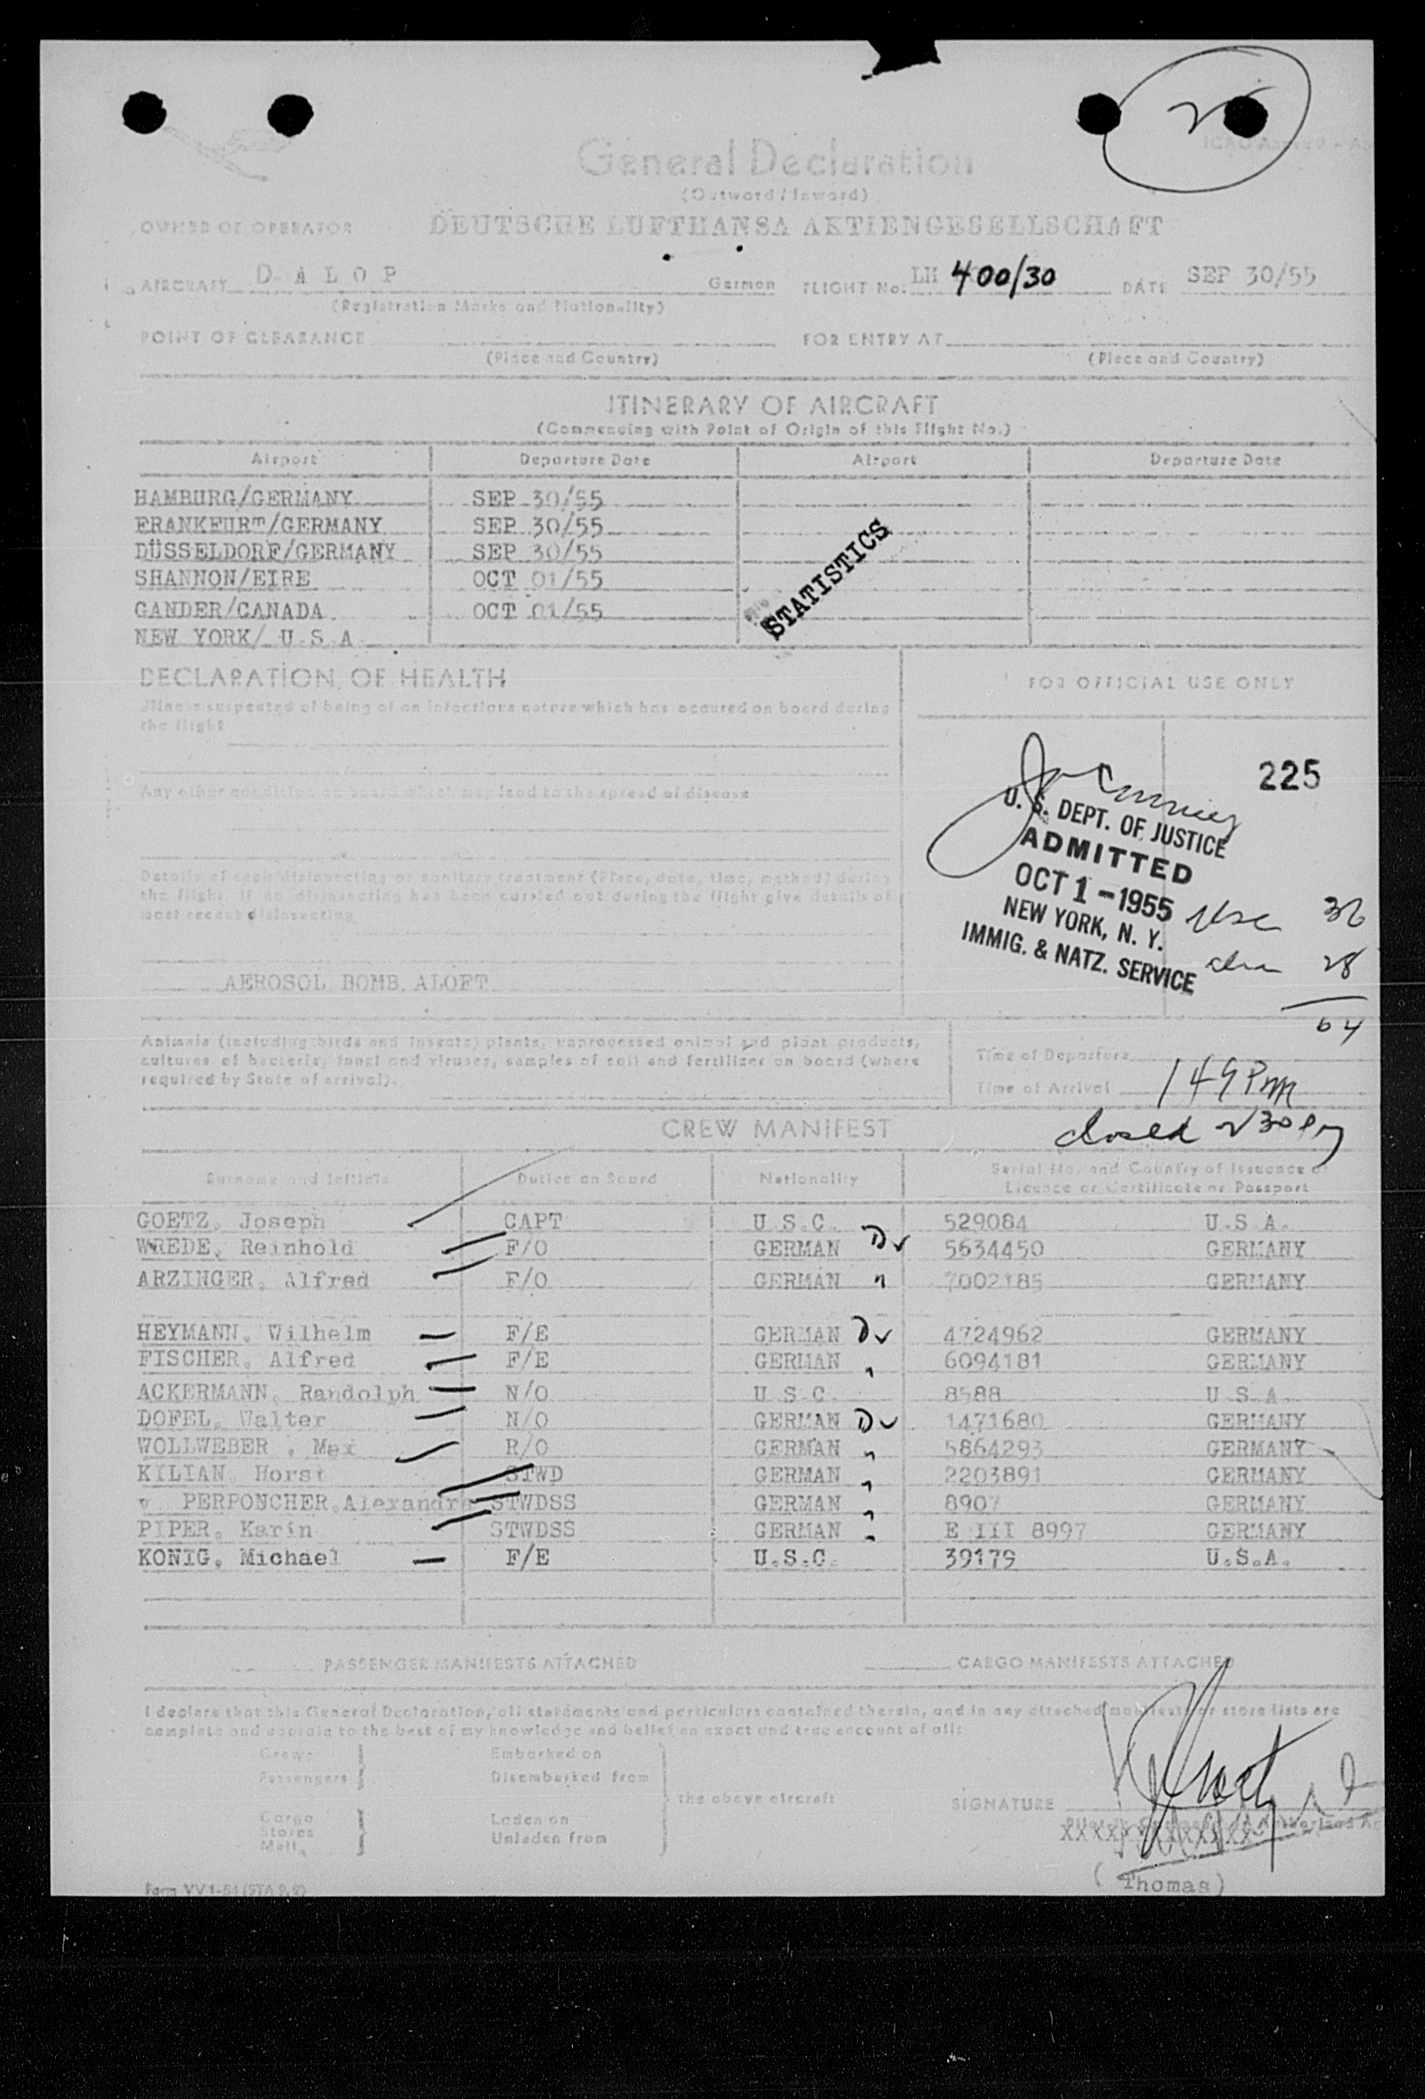 General Declaration
(Outward/Inward)
OWNER OF OPERATOR DEUTSCHE LUFTHANSA AKTIENGESELLSCHAFT
AIRCRAFT D-ALOP German FLIGHT No. LH 400/30 DATE SEP 30/55
(Registration Marks and Nationality)
POINT OF CLEARANCE FOR ENTRY AT
(Place and Country) (Place and Country)
ITINERARY OF AIRCRAFT
(Commencing with Point of Origin of this Flight No.)
Airport Departure Date Airport Departure Date
HAMBURG/GERMANY SEP 30/55
FRANKFURT/GERMANY SEP 30/55
DÜSSELDORF/GERMANY SEP 30/55
SHANNON/EIRE OCT 01/55
GANDER/CANADA OCT 01/55
NEW YORK/ U.S.A.
STATISTICS
DECLARATION OF HEALTH
Illness suspected of being of an infectious nature which has occured on board during
the flight
Any other condition on board which may lead to the spread of disease
Details of each disinsecting or sanitary treatment (Place, date, time, method) during
the flight. If no disinsecting has been carried out during the flight give details of
most recent disinsecting
AEROSOL BOMB ALOFT
FOR OFFICIAL USE ONLY
225
U. S. DEPT. OF JUSTICE
ADMITTED
OCT 1 - 1955
NEW YORK, N. Y.
IMMIG. & NATZ. SERVICE
Usc 36
alien 28
64
Animals (including birds and insects) plants, unprocessed animal and plant products,
cultures of bacteria, fungi and viruses, samples of soil and fertilizer on board (where
required by State of arrival).
Time of Departure
Time of Arrival 149 Pm
closed 230 Pm
CREW MANIFEST
Surname and Initials Duties on Board Nationality Serial No. and Country of Issuance of
Licence or Certificate or Passport
GOETZ, Joseph CAPT U.S.C. 529084 U.S.A.
WREDE, Reinhold F/O GERMAN D✓ 5634450 GERMANY
ARZINGER, Alfred F/O GERMAN " 7002185 GERMANY
HEYMANN, Wilhelm F/E GERMAN D✓ 4724962 GERMANY
FISCHER, Alfred F/E GERMAN " 6094181 GERMANY
ACKERMANN, Randolph N/O U.S.C. 8588 U.S.A.
DOFEL, Walter N/O GERMAN D✓ 1471680 GERMANY
WOLLWEBER , Max R/O GERMAN " 5864293 GERMANY
KILIAN, Horst STWD GERMAN " 2203891 GERMANY
v. PERPONCHER, Alexandra STWDSS GERMAN " 8907 GERMANY
PIPER, Karin STWDSS GERMAN " E III 8997 GERMANY
KONIG, Michael F/E U.S.C. 39179 U.S.A.
PASSENGER MANIFESTS ATTACHED CARGO MANIFESTS ATTACHED
I declare that this General Declaration, all statements and particulars contained therein, and in any attached manifests or stores lists are
complete and contain to the best of my knowledge and belief an exact and true account of all:
Crews Embarked on
Passengers Disembarked from
the above aircraft
Cargo Laden on
Stores Unladen from
Mail,
SIGNATURE
(Thomas)
Form VV 1-51